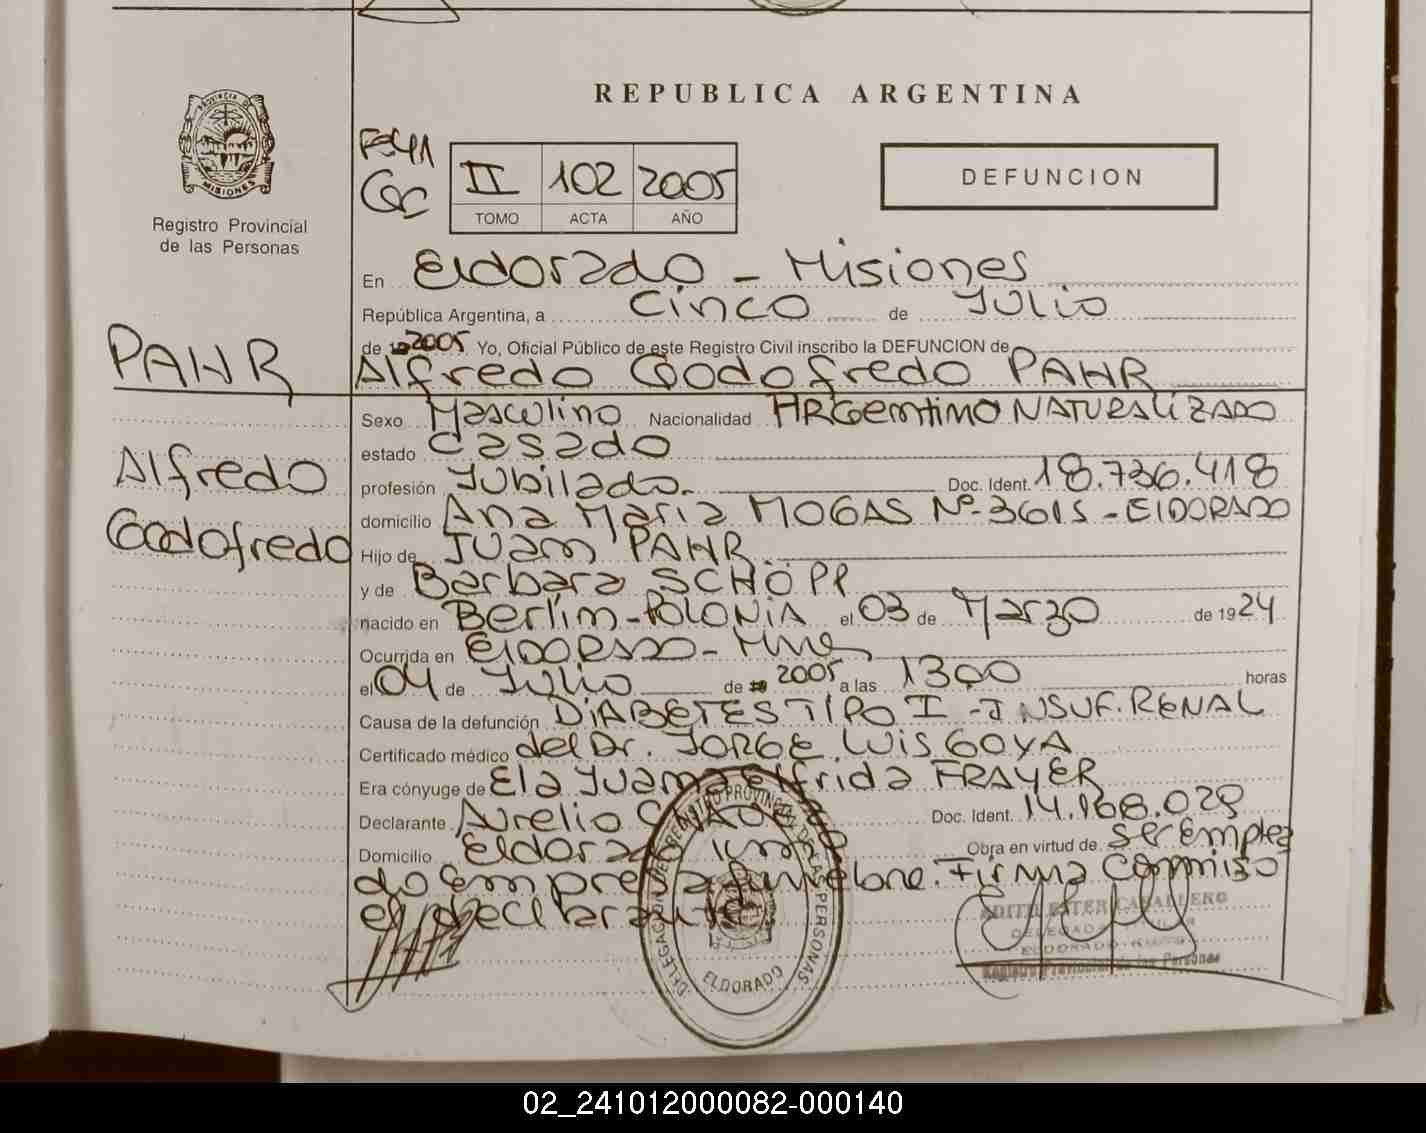 REPUBLICA ARGENTINA
PROVINCIA DE
MISIONES
Registro Provincial
de las Personas
II 102 2005
TOMO ACTA AÑO
DEFUNCION
En Eldorado - Misiones
República Argentina, a cinco de Julio
de 2005 Yo, Oficial Público de este Registro Civil inscribo la DEFUNCION de
PAHR
Alfredo Godofredo PAHR
Sexo Masculino Nacionalidad ARGentino NATURALIZADO
estado casado
Alfredo
profesión Jubilado. Doc. Ident. 18.736.418
Godofredo
domicilio Ana Maria MOGAS Nº 3615 - ElDORADO
Hijo de Juan PAHR
y de Barbara SCHÖPP
nacido en Berlin - POLONIA el 03 de Marzo de 1924
Ocurrida en ElDORADO - Mnes
el 04 de Julio de 2005 a las 1300 horas
Causa de la defunción DiABETES TIPO I - INSUF. RENAL
Certificado médico del Dr. JORGE LUIS GOYA
Era cónyuge de Ela Juana Elfrida FRAYER
Declarante Aurelio Doc. Ident. 14.168.029
Domicilio Eldorado Obra en virtud de ser emplea
do empresa funebre. Firma conmigo
el declarante
DELEGACION DEL REGISTRO PROVINCIAL DE LAS PERSONAS
ELDORADO
EDITH ESTER CABALLERO
Registro Provincial de las Personas
02_241012000082-000140